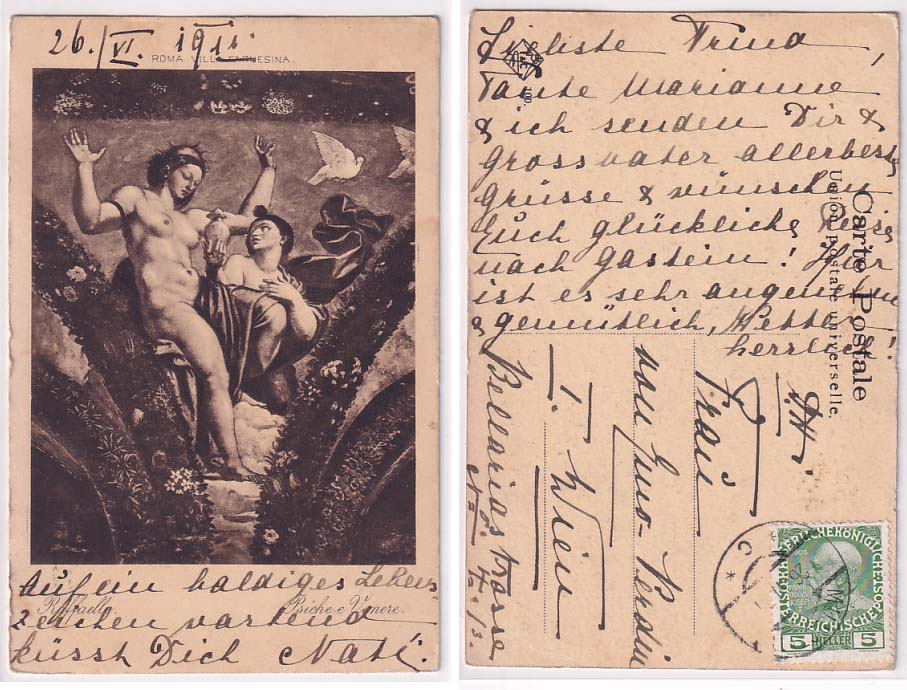 26./VI. 1911.
ROMA VILLA FARNESINA.
Auf ein baldiges Lebens
zeichen wartend
Raffaello. Psiche e Venere.
küsst Dich Nati.
Liebste Trina,
Tante Marianne
& ich senden Dir &
Grossvater allerbeste
Grüsse & wünschen
Euch glückliche Reise
nach Gastein! Hier
ist es sehr angenehm
& gemütlich, Wetter
herrlich!
Carte Postale
Union Postale universelle.
Frau
von
I. Wien
Bellariastrasse
No 4
5 HELLER 5